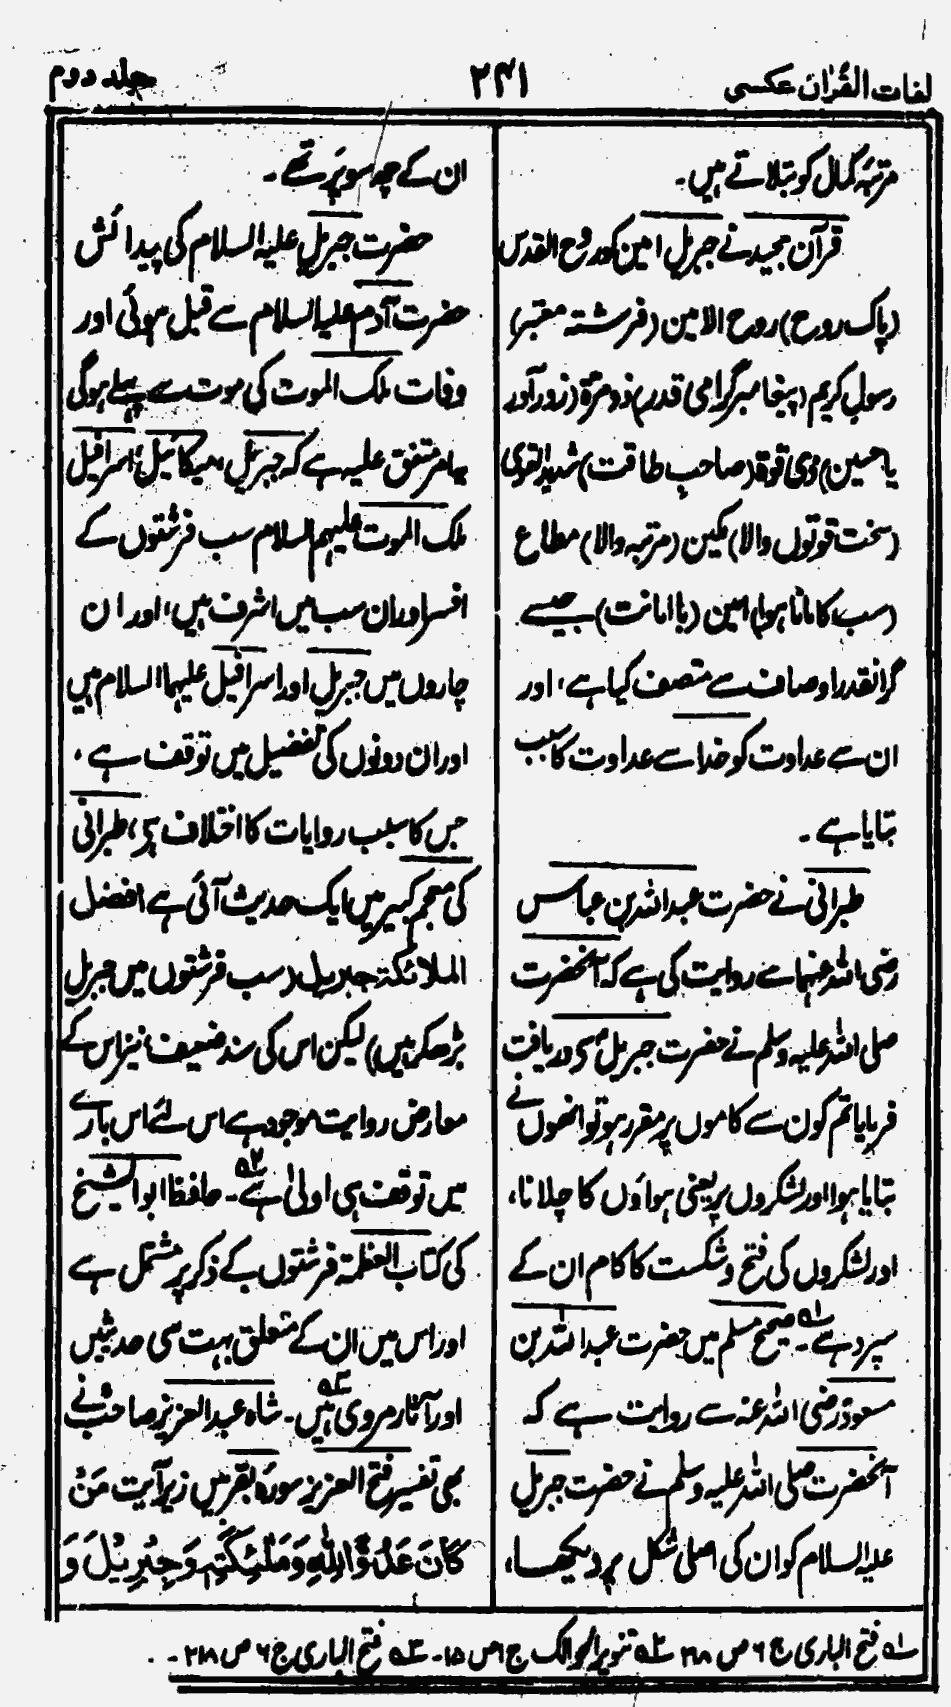 لغات القرآن عکسی
۲۴۱
جلد دوم
مرتبۂ کمال کو بتلاتے ہیں۔
قرآن مجید نے جبریل امین کو روح القدس
(پاک روح) روح الامین (فرشتہ معتبر)
رسول کریم (پیغامبر گرامی قدر) ذو مرۃ (زور آور
یا حسین) ذی قوۃ (صاحب طاقت) شدید القوی
(سخت قوتوں والا) مکین (مرتبہ والا) مطاع
(سب کا مانا ہوا) امین (با امانت) جیسے
گرانقدر اوصاف سے متصف کیا ہے، اور
ان سے عداوت کو خدا سے عداوت کا سبب
بتایا ہے۔
طبرانی نے حضرت عبد اللہ بن عباس
رضی اللہ عنہما سے روایت کی ہے کہ آنحضرت
صلی اللہ علیہ وسلم نے حضرت جبریل سے دریافت
فرمایا تم کون سے کاموں پر مقرر ہو تو انھوں نے
بتایا ہوا اور لشکروں پر یعنی ہواؤں کا چلانا،
اور لشکروں کی فتح و شکست کا کام ان کے
سپرد ہے ۱ھ۔ صحیح مسلم میں حضرت عبد اللہ بن
مسعود رضی اللہ عنہ سے روایت ہے کہ
آنحضرت صلی اللہ علیہ وسلم نے حضرت جبریل
علیہ السلام کو ان کی اصلی شکل پر دیکھا،
ان کے چھ سو پر تھے۔
حضرت جبریل علیہ السلام کی پیدائش
حضرت آدم علیہ السلام سے قبل ہوئی اور
وفات ملک الموت کی موت سے پہلے ہوگی
یہ امر متفق علیہ ہے کہ جبریل، میکائیل، اسرافیل
ملک الموت علیہم السلام سب فرشتوں کے
افسر اور ان سب میں اشرف ہیں، اور ان
چاروں میں جبریل اور اسرافیل علیہما السلام ہیں
اور ان دونوں کی تفضیل میں توقف ہے،
جس کا سبب روایات کا اختلاف ہے، طبرانی
کی معجم کبیر میں ایک حدیث آئی ہے افضل
الملائکۃ جبریل (سب فرشتوں میں جبریل
بڑھکر ہیں) لیکن اس کی سند ضعیف، نیز اس کے
معارض روایت موجود ہے اس لئے اس بارے
میں توقف ہی اولیٰ ہے ۲ھ۔ حافظ ابو الشیخ
کی کتاب العظمۃ فرشتوں کے ذکر پر مشتمل ہے
اور اس میں ان کے متعلق بہت سی حدیثیں
اور آثار مروی ہیں ۳ھ۔ شاہ عبد العزیز صاحب نے
بھی تفسیر فتح العزیز سورۂ بقرہ میں زیر آیت مَنْ
كَانَ عَدُوًّا لِلّٰهِ وَمَلٰٓئِكَتِهٖ وَجِبْرِيْلَ وَ
۱ھ فتح الباری ج ۶ ص ۲۱۸ ۲ھ تنویر الحوالک ج ۱ ص ۱۵۔ ۳ھ فتح الباری ج ۶ ص ۲۱۸۔